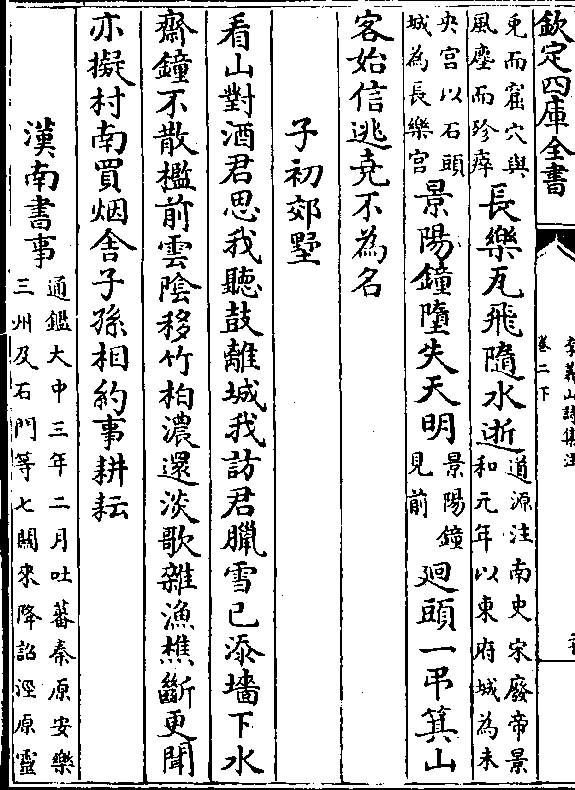 欽定四庫全書
李義山詩集注
卷二下
兎而窟穴與
風塵而殄瘁
長樂瓦飛隨水逝
道源注南史宋廢帝景
和元年以東府城為未
央宫以石頭
城為長樂宫
景陽鐘墮失天明
景陽鐘
見前
廻頭一弔箕山
客始信逃堯不為名
子初郊墅
看山對酒君思我聽鼓離城我訪君臘雪已添墻下水
齋鐘不散檻前雲陰移竹柏濃還淡歌雜漁樵斷更聞
亦擬村南買烟舎子孫相約事耕耘
漢南書事
通鑑大中三年二月吐蕃秦原安樂
三州及石門等七闗來降詔涇原靈